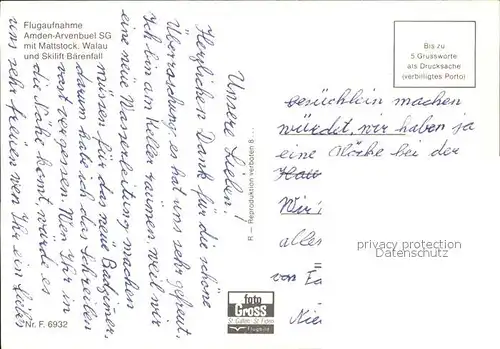 Flugaufnahme
Amden-Arvenbuel SG
mit Mattstock. Walau
und Skilift Bärenfall
Unsere Lieben!
Herzlichen Dank für die schöne
Überraschung, es hat uns sehr gefreut.
Ich bin am Keller räumen, weil wir
eine neue Wasserleitung machen
müssen für das neue Badzimmer,
darum habe ich das Schreiben
fast vergessen. Wen Ihr in
die Nähe komt, würde es
uns sehr freuen wen Ihr ein
besüchlein machen
würdet, wir haben ja
eine bei der
Haus
Wir
alles
von
Nr. F. 6932
R — Reproduktion verboten 8...
foto
Gross
St. Gallen St. Fiden
Flugbild
Bis zu
5 Grussworte
als Drucksache
(verbilligtes Porto)
privacy protection
Datenschutz